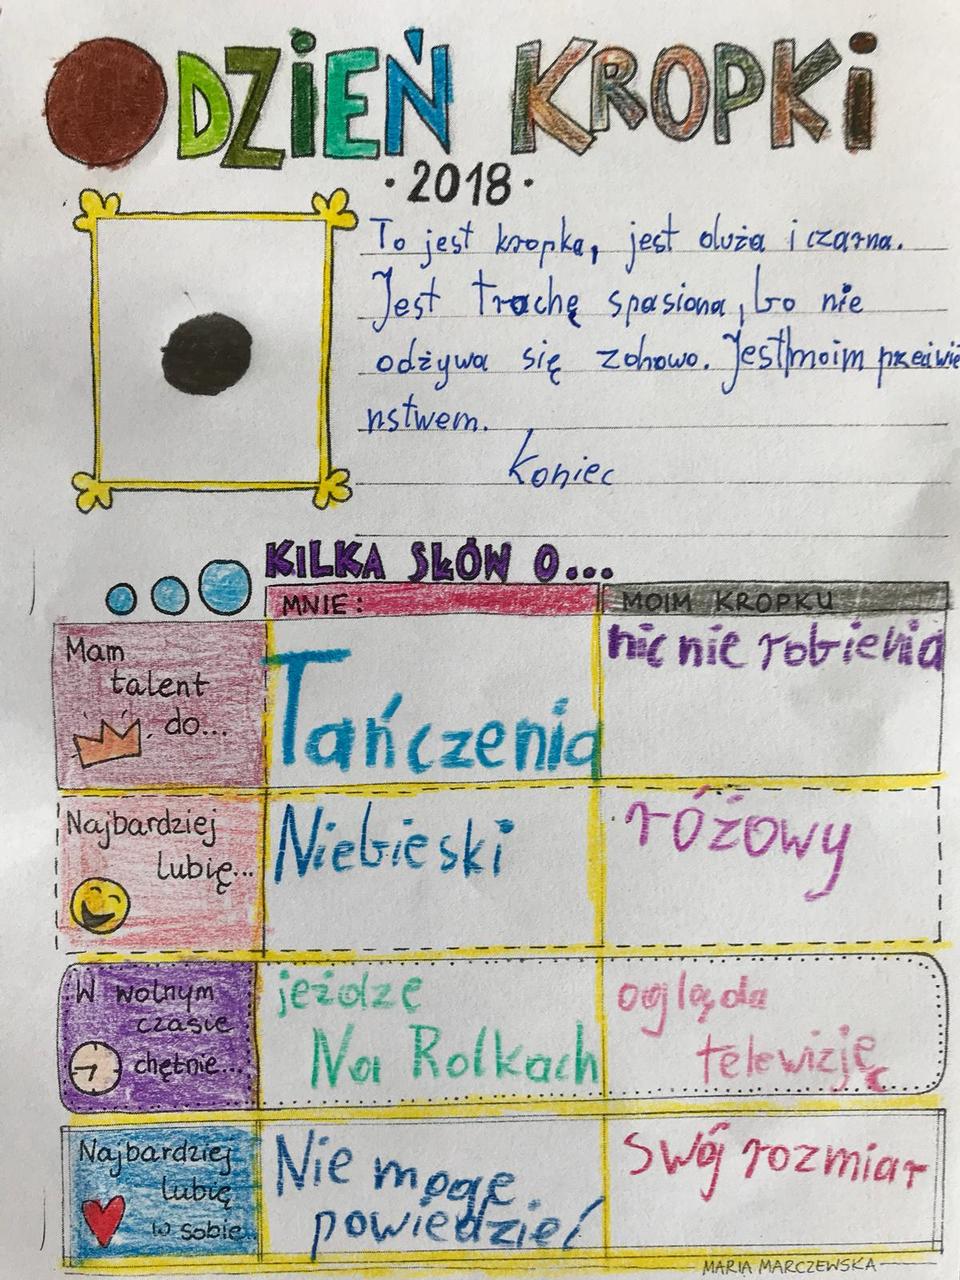 DZIEŃ KROPKI
·2018·
To jest kropka, jest duża i czarna.
Jest trochę spasiona, bo nie
odżywa się zdrowo. Jest moim przeciwie
nstwem.
Koniec
KILKA SŁÓW O...
MNIE:
MOIM KROPKU
Mam
talent
do...
Tańczenia
nic nie robienia
Najbardziej
lubię...
Niebieski
różowy
W wolnym
czasie
chętnie...
jeżdzę
Na Rolkach
ogląda
telewizję
Najbardziej
lubię
w sobie
Nie mogę
powiedzieć
swój rozmiar
MARIA MARCZEWSKA